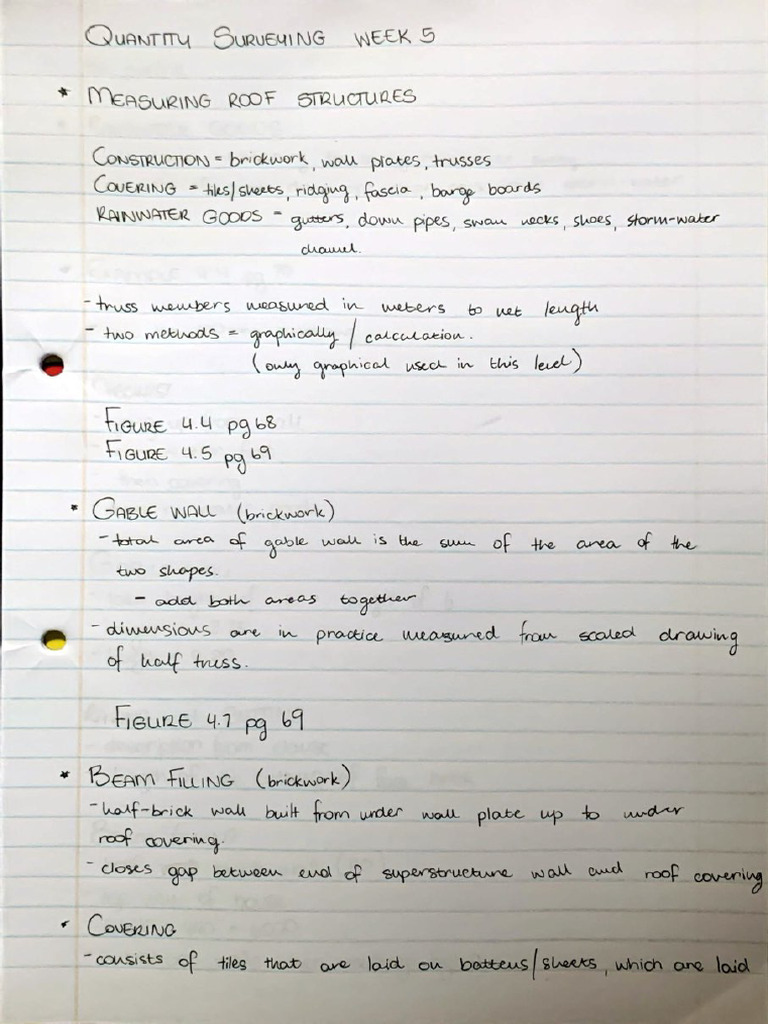 QUANTITY SURVEYING WEEK 5
* MEASURING ROOF STRUCTURES
CONSTRUCTION = brickwork, wall plates, trusses
COVERING = tiles/sheets, ridging, fascia, barge boards
RAINWATER GOODS = gutters, down pipes, swan necks, shoes, storm-water
channel.
- truss members measured in meters to net length
- two methods = graphically / calculation.
(only graphical used in this level)
FIGURE 4.4 pg 68
FIGURE 4.5 pg 69
* GABLE WALL (brickwork)
- total area of gable wall is the sum of the area of the
two shapes.
- add both areas together
- dimensions are in practice measured from scaled drawing
of half truss.
FIGURE 4.7 pg 69
* BEAM FILLING (brickwork)
- half-brick wall built from under wall plate up to under
roof covering.
- closes gap between end of superstructure wall and roof covering
* COVERING
- consists of tiles that are laid on battens/sheets, which are laid